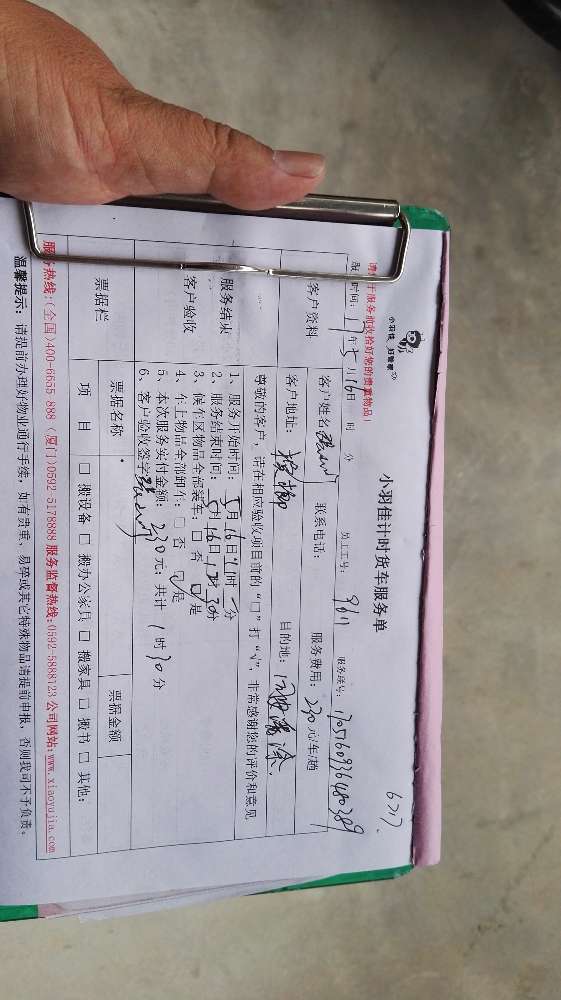 小羽佳 好管家
小羽佳计时货车服务单
6717
请您于服务前收拾好您的贵重物品!
服务时间: 17年5月16日 时 分 员工工号: 9611 服务账号:
客户资料
客户姓名 联系电话: 服务费用: 230元/车/趟
客户地址: 目的地:
尊敬的客户, 请在相应验收项目前的 "□" 打 "√", 非常感谢您的评价和意见
服务结束
客户验收
1、服务开始时间: 5月16日11时 分
2、服务结束时间: 5月16日12时30分
3、候车区物品全部装车: □ 否 ☑ 是
4、车上物品全部卸车: □ 否 ☑ 是
5、本次服务实付金额: 230元; 共计 1时30分
6、客户验收签字:
票据栏
票据名称 票据金额
项 目 □ 搬设备 □ 搬办公家具 □ 搬家具 □ 搬书 □ 其他:
服务热线: (全国)400-6655 888 (厦门)0592-5178888 服务监督热线: 0592-5888723 公司网站: www.xiaoyujia.com
温馨提示: 请提前办理好物业通行手续, 如有贵重、易碎或其它特殊物品请提前申报, 否则我司不予负责。